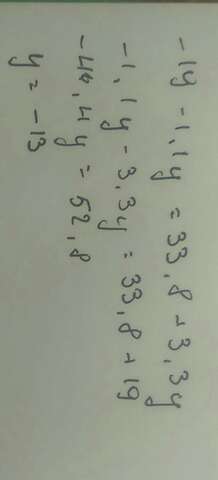 -19 -1,1y = 33,8 + 3,3y
-1,1y - 3,3y = 33,8 + 19
-44,4y = 52,8
y = -13